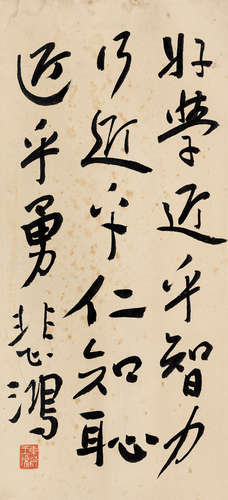 好學近乎智力
行近乎仁知恥
近乎勇 悲鴻